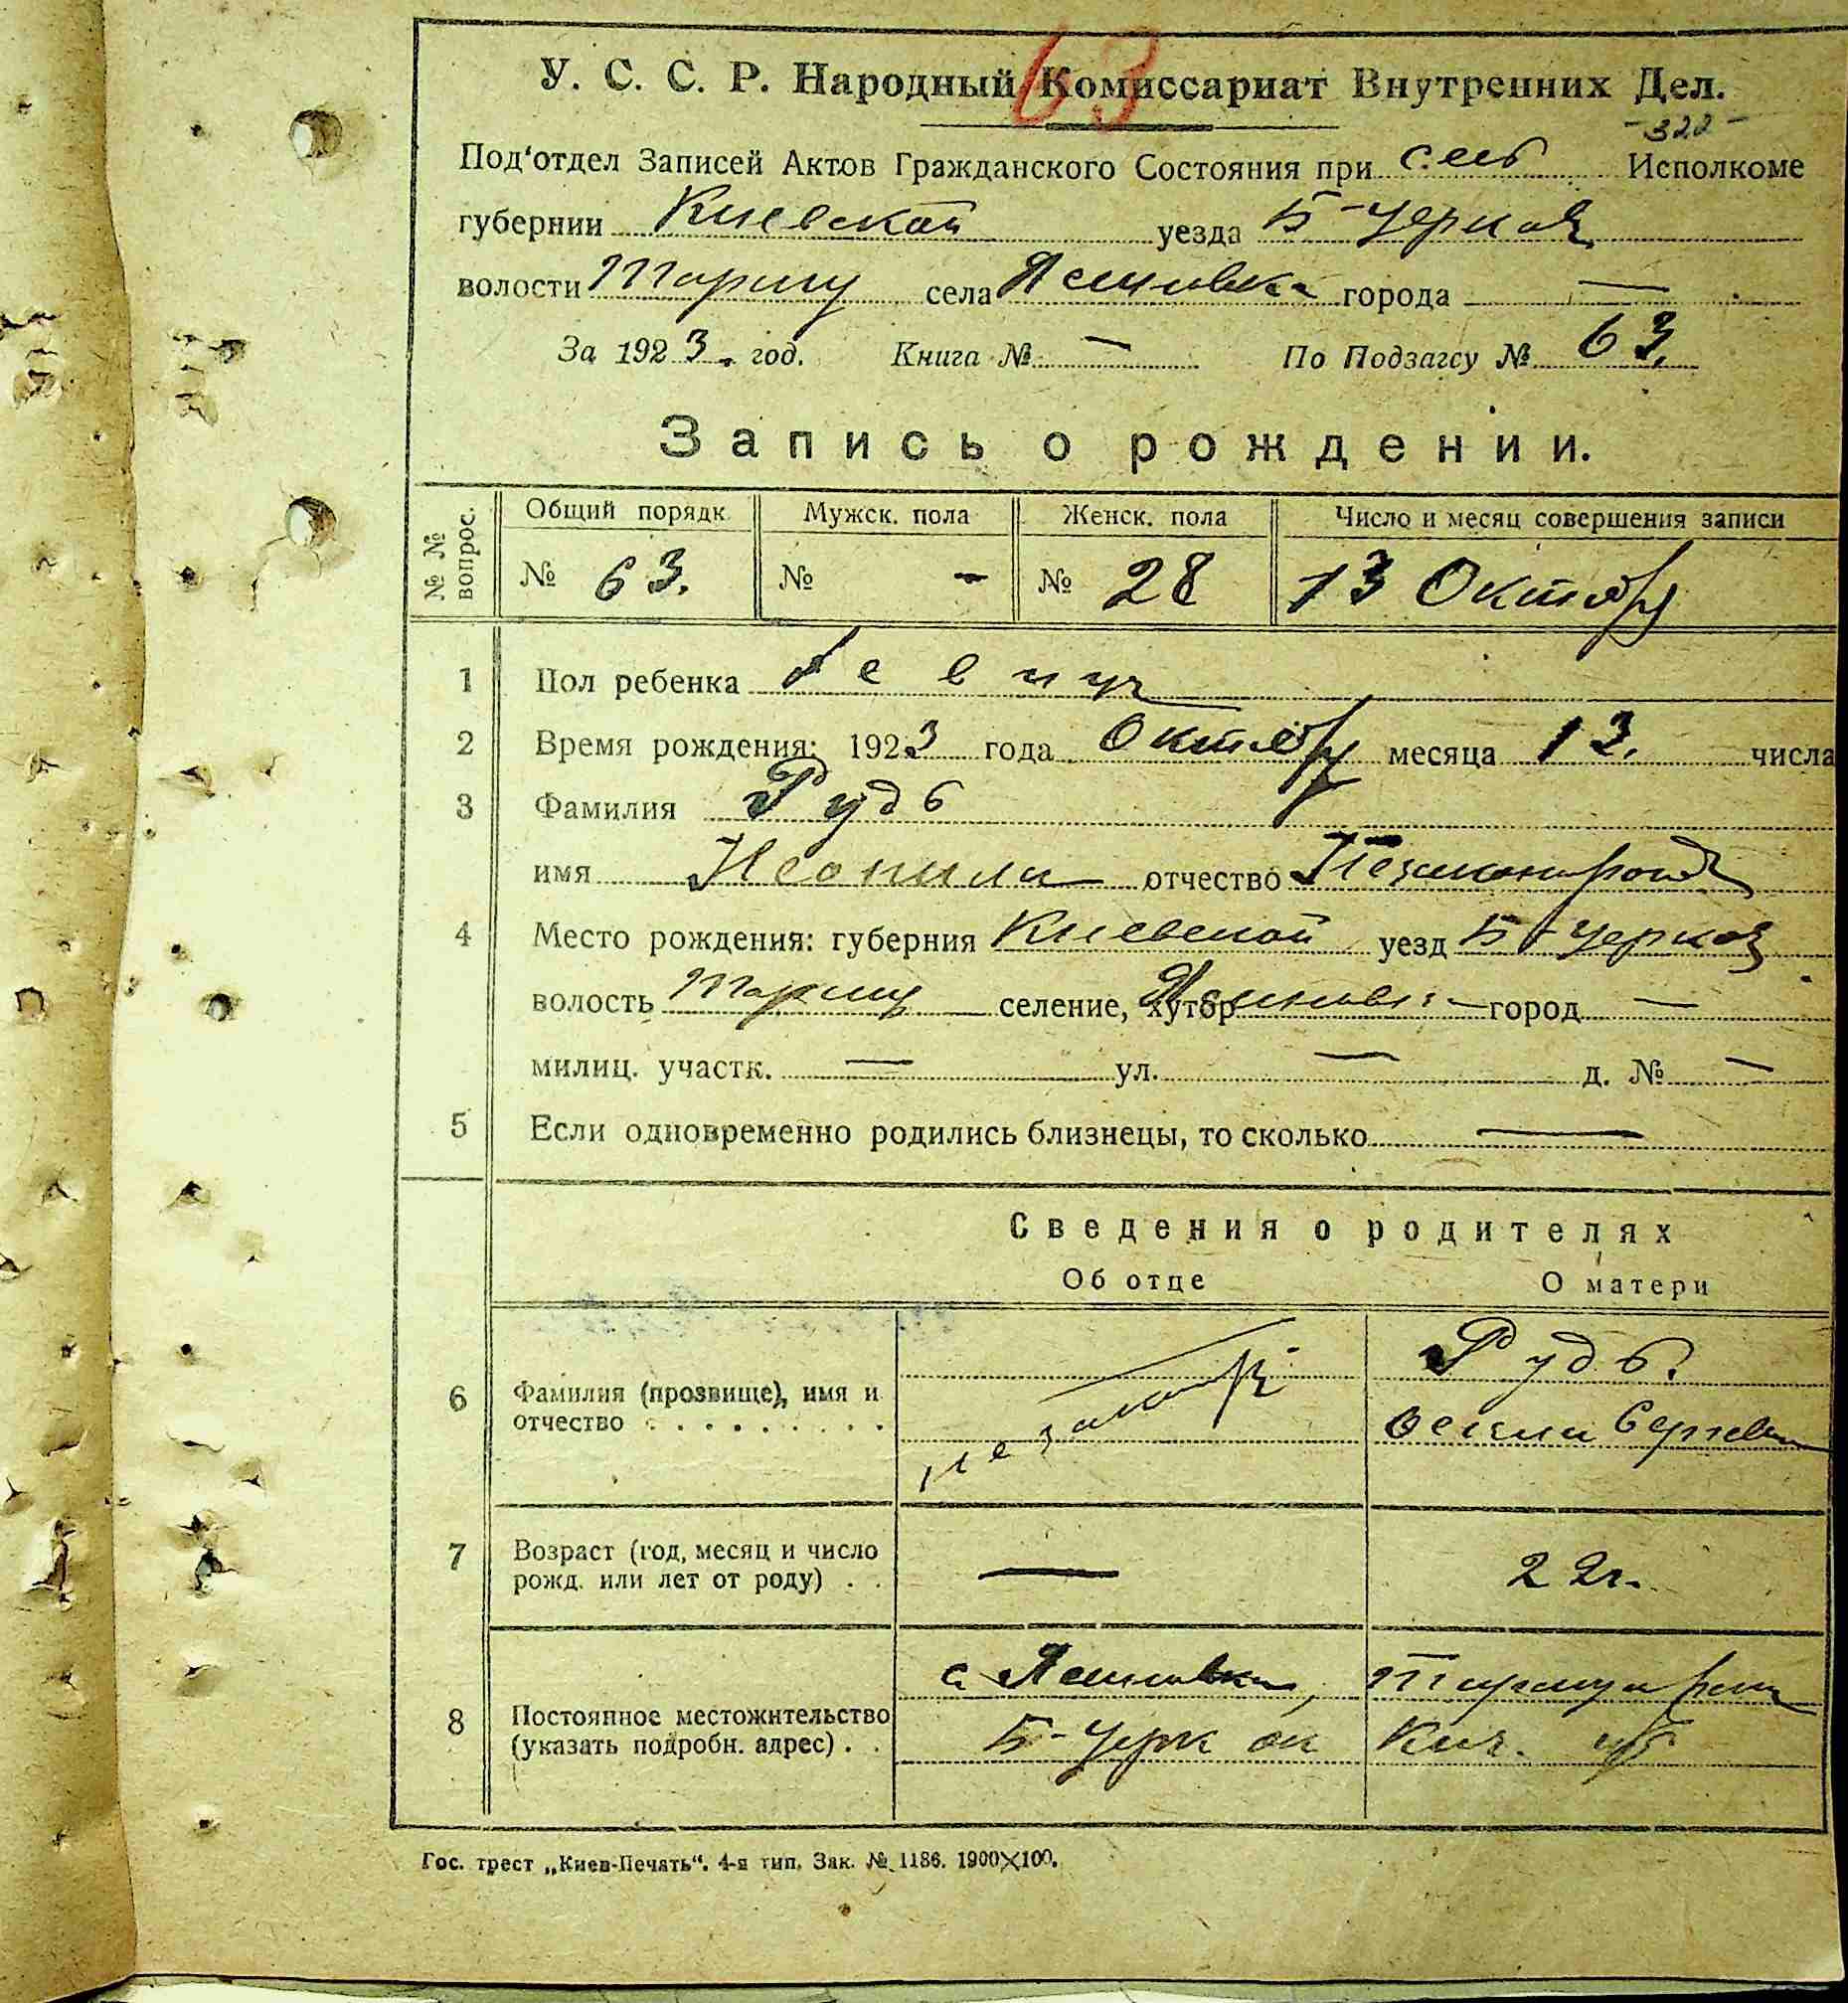 63
У. С. С. Р. Народный Комиссариат Внутренних Дел.
-322-
Под‘отдел Записей Актов Гражданского Состояния при сель Исполкоме
губернии Киевской уезда Б-Церков
волости Таращ села города —
За 1923. год. Книга № — По Подзагсу № 63.
Запись о рождении.
№ № вопрос. Общий порядк Мужск. пола Женск. пола Число и месяц совершения записи
№ 63. № - № 28 13 Октябр
1 Пол ребенка
2 Время рождения: 1923 года Октябр месяца 13. числа
3 Фамилия Рудь
имя Неонила отчество
4 Место рождения: губерния Киевской уезд Б-Церков
волость Таращ селение, хутор город —
милиц. участк. — ул. — д. № —
5 Если одновременно родились близнецы, то сколько —
Сведения о родителях
Об отце О матери
6 Фамилия (прозвище), имя и отчество . . . . . . . . . Рудь.
7 Возраст (год, месяц и число рожд. или лет от роду) . . — 22г.
8 Постоянное местожительство (указать подробн. адрес) . . с.
Б-Церк ок
Гос. трест „Киев-Печать“. 4-я тип. Зак. № 1186. 1900×100.